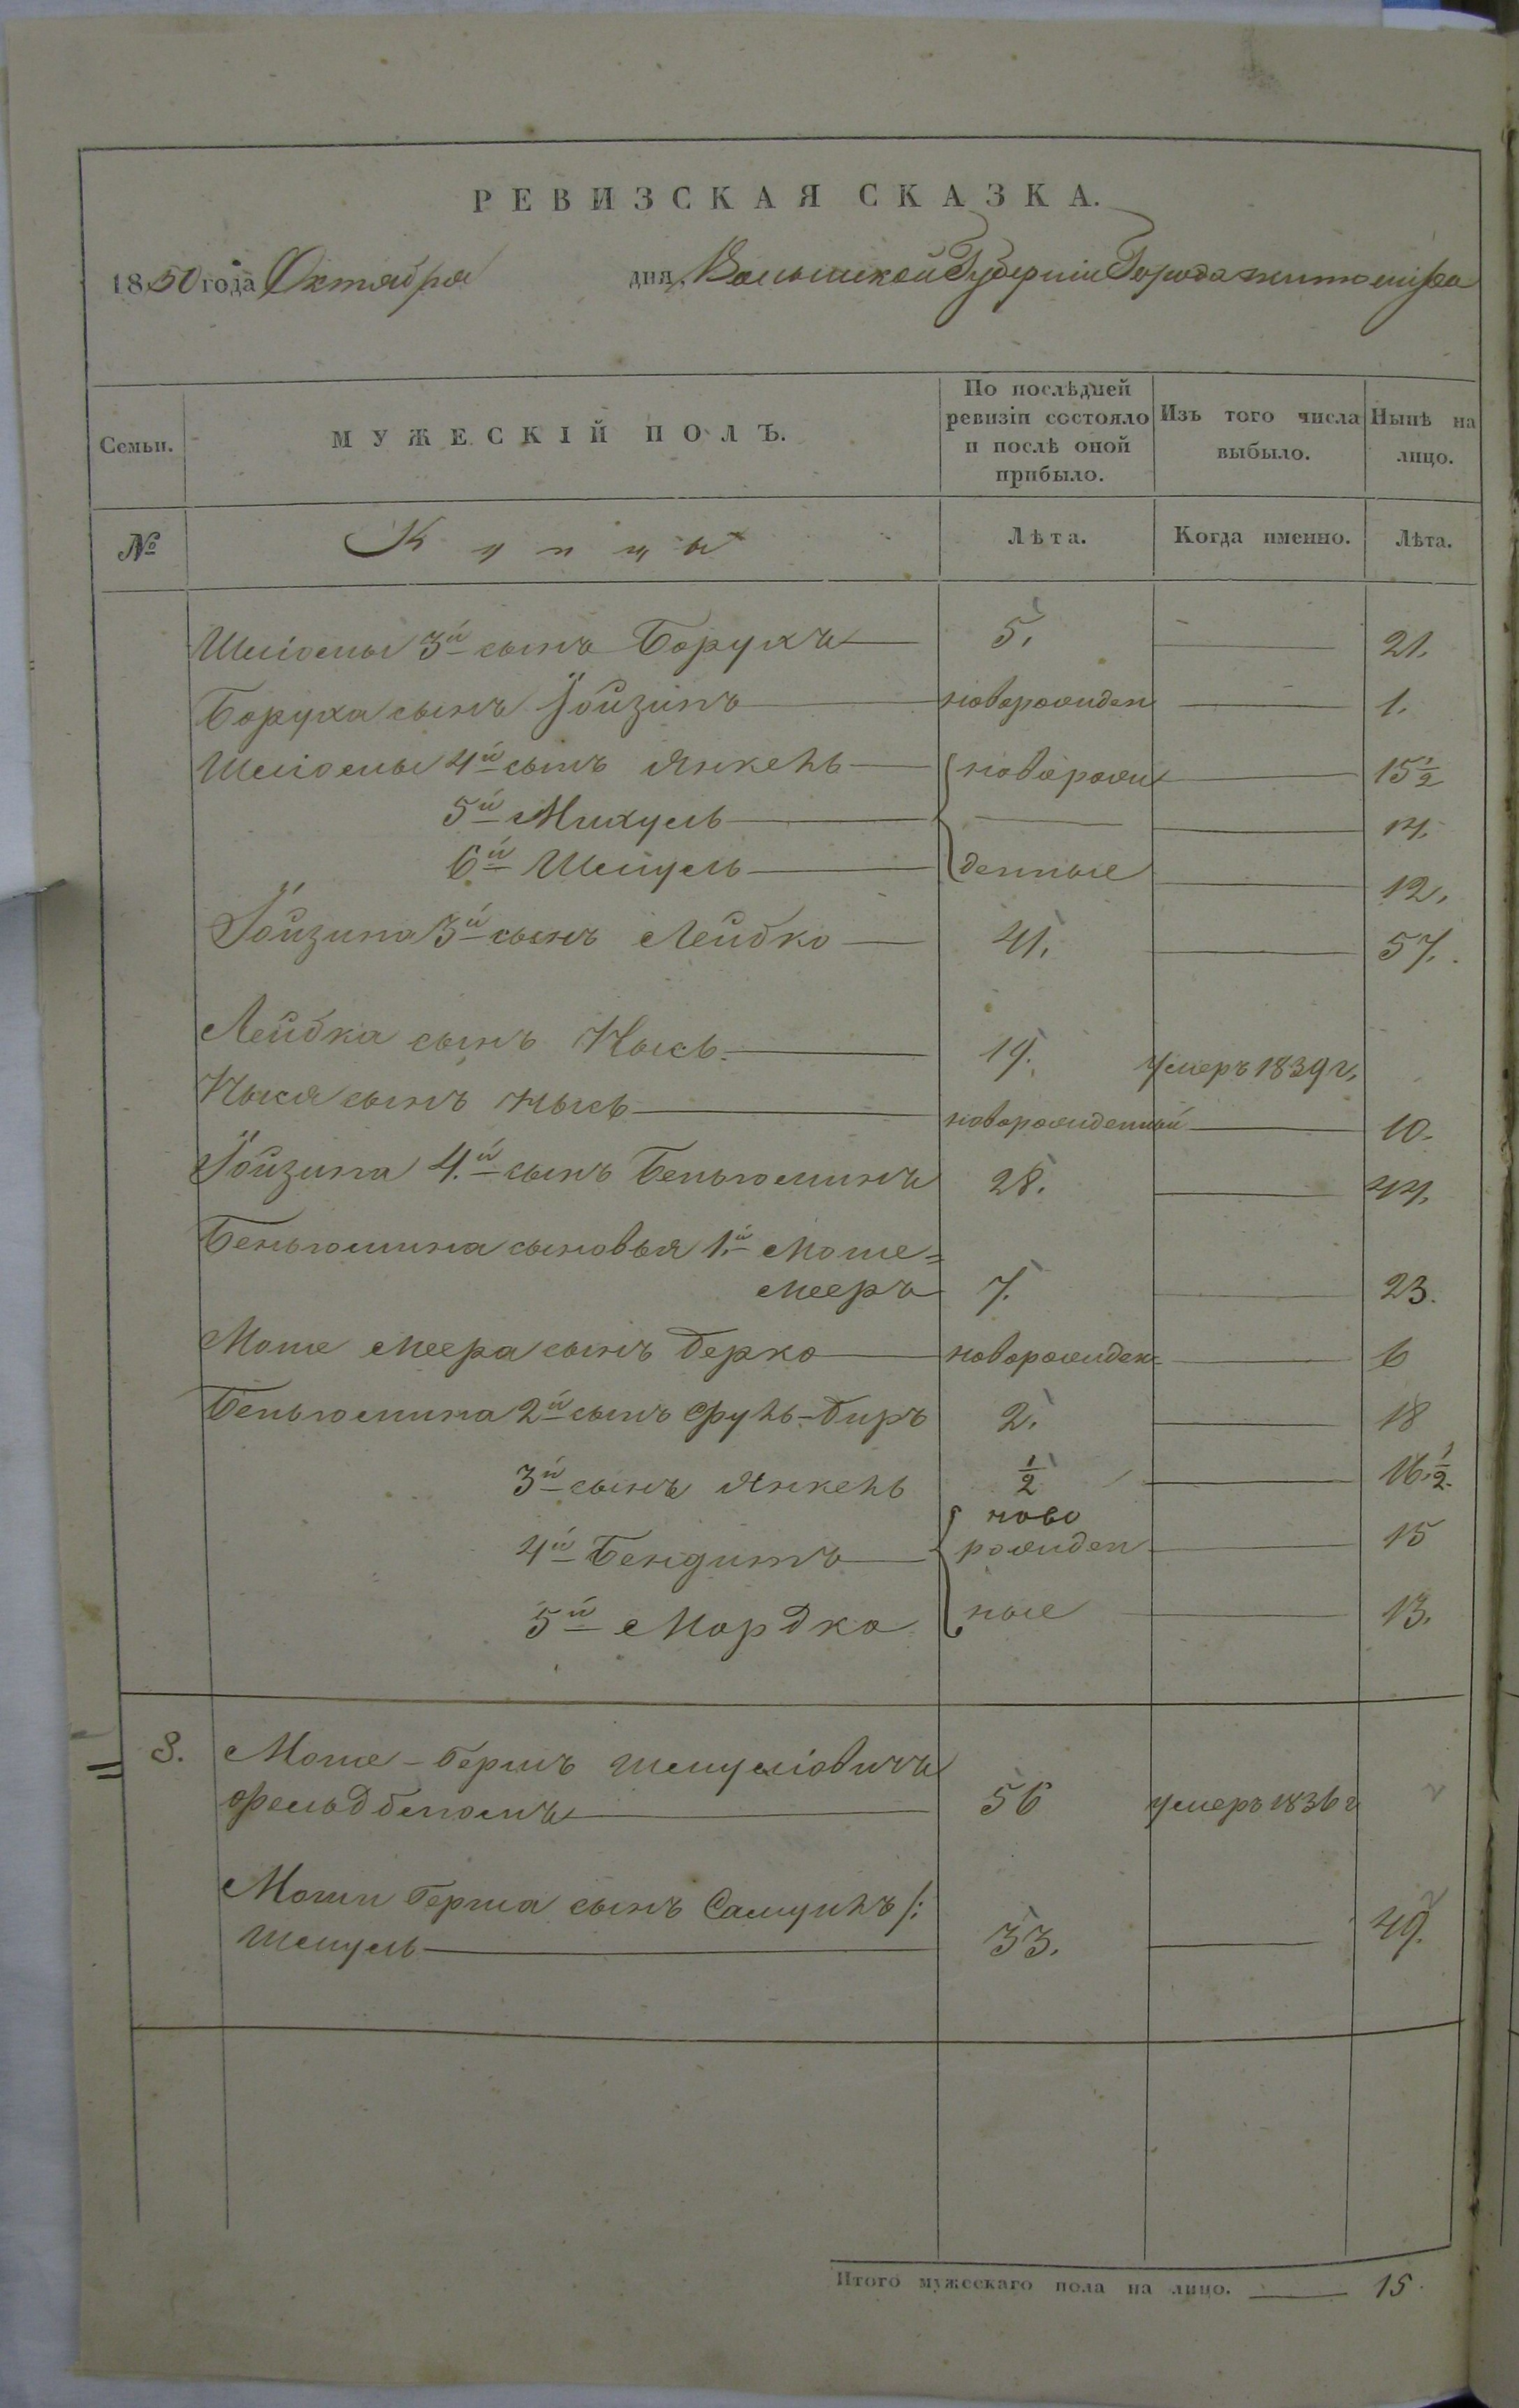 РЕВИЗСКАЯ СКАЗКА.
1850 года Октября дня, Волынской Губерніи Города Житомира
Семьи. МУЖЕСКІЙ ПОЛЪ. По послѣдней ревизіи состояло и послѣ оной прибыло. Изъ того числа выбыло. Нынѣ на лицо.
№ Купцы Лѣта. Когда именно. Лѣта.
Шліомы 3й сынъ Борухъ 5. 21.
Боруха сынъ Іойзипъ новорожден 1.
Шліомы 4й сынъ Янкель новорож 15 1/2
5й Михуель 14.
6й Шмуель денные 12.
Іойзипа 3й сынъ Лейбко 41. 57.
Лейбка сынъ Нысь 19. умеръ 1839 г.
Ныся сынъ Нысь новорожденный 10.
Іойзипа 4.й сынъ Беньюминъ 28. 44.
Беньюмина сыновья 1.й Моше=
Мееръ 7. 23.
Моше Меера сынъ Берко новорожден= 6
Беньюмина 2й сынъ Сруль-Биръ 2. 18
3й сынъ Янкель 1/2 16. 1/2.
ново
4й Бендитъ рожден 15
5й Мордко ные 13.
3. Моше-Гершъ Шмуліовичъ
Фельдблюмъ 56 умеръ 1836 г
Мошки Герша сынъ Самуилъ /:
Шмуель 33. 49.
Итого мужескаго пола на лицо. 15.